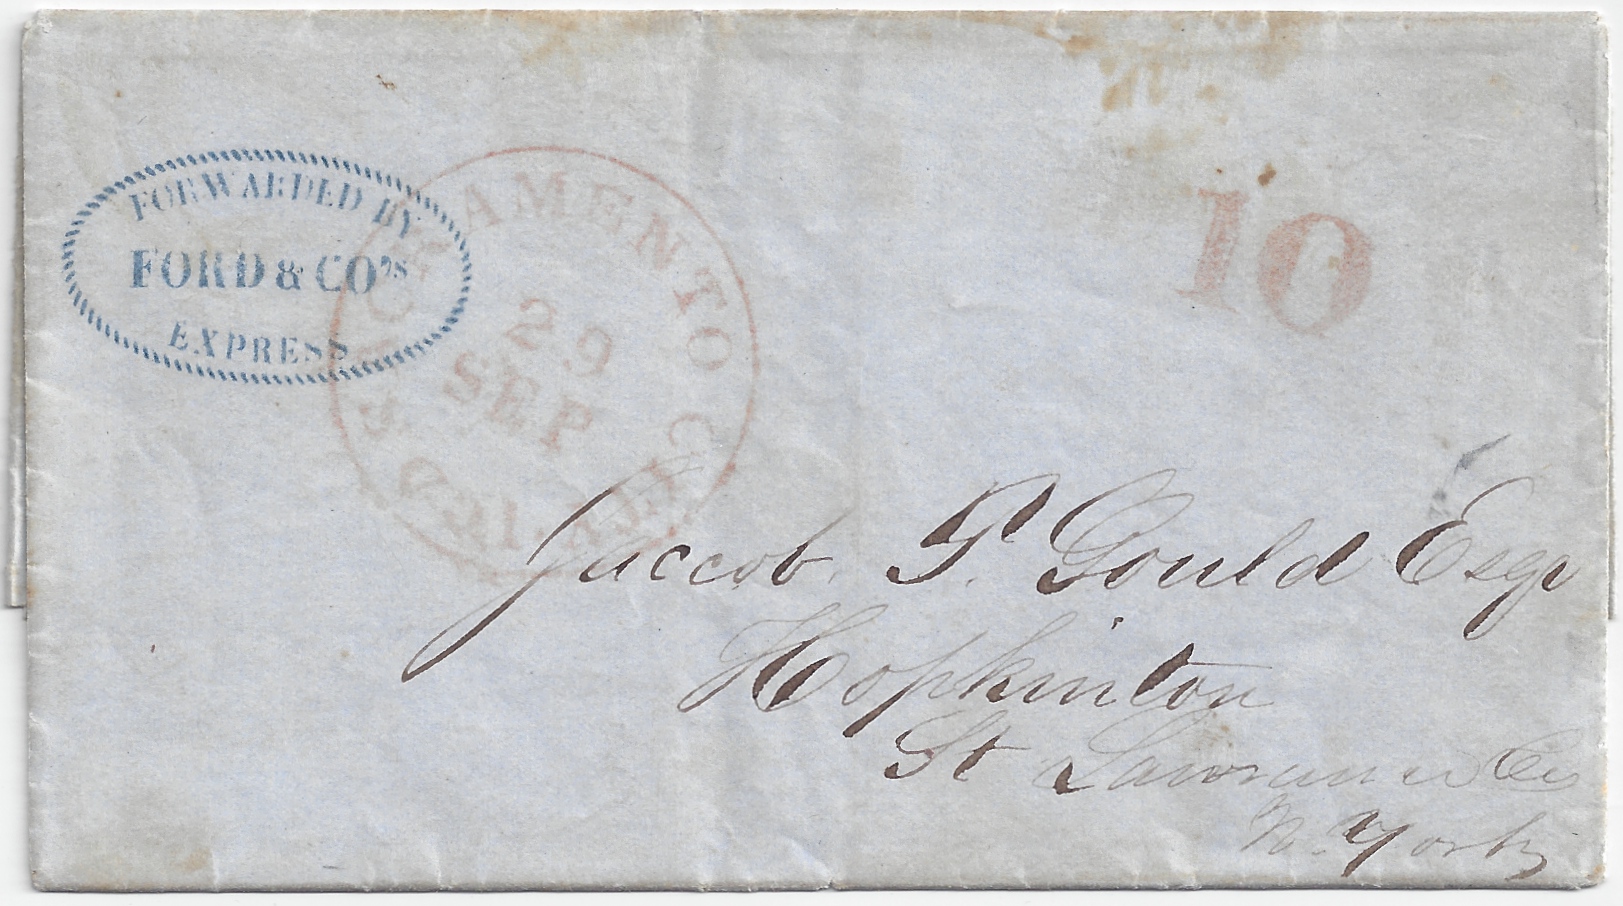 FORWARDED BY
FORD & CO'S
EXPRESS
SACRAMENTO CITY CAL
29
SEP
10
Jaccob. P. Gould Esqr
Hopkinton
St Lawrence Co
N. York